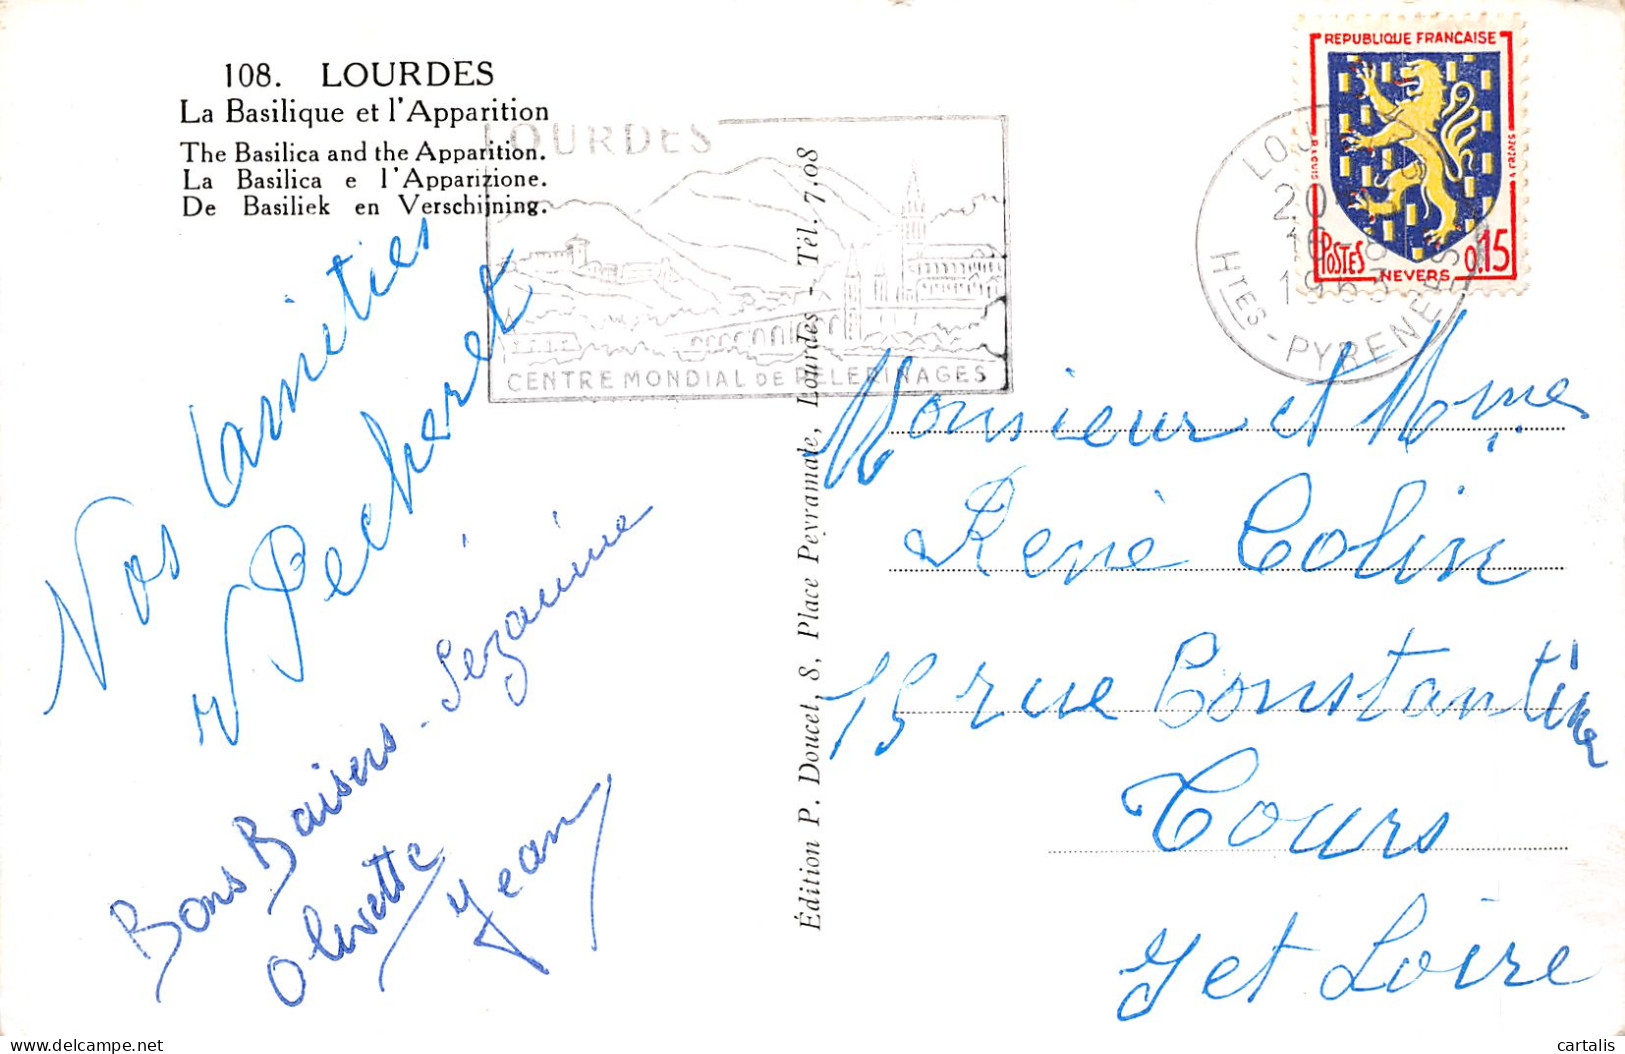 108. LOURDES
La Basilique et l'Apparition
The Basilica and the Apparition.
La Basilica e l'Apparizione.
De Basiliek en Verschijning.
LOURDES
CENTRE MONDIAL DE PELERINAGES
REPUBLIQUE FRANCAISE
POSTES 0,15
NEVERS
LOURDES
20
16
1963
HTES-PYRENEES
Édition P. Doucet, 8, Place Peyramale, Lourdes - Tél. 7.08
Nos amitiés
Pecheret
Bons Baisers - Sézanine
Olivette
Jean
Monsieur et Mmes
René Colin
15 rue Constantine
Tours
I et Loire
cartalis